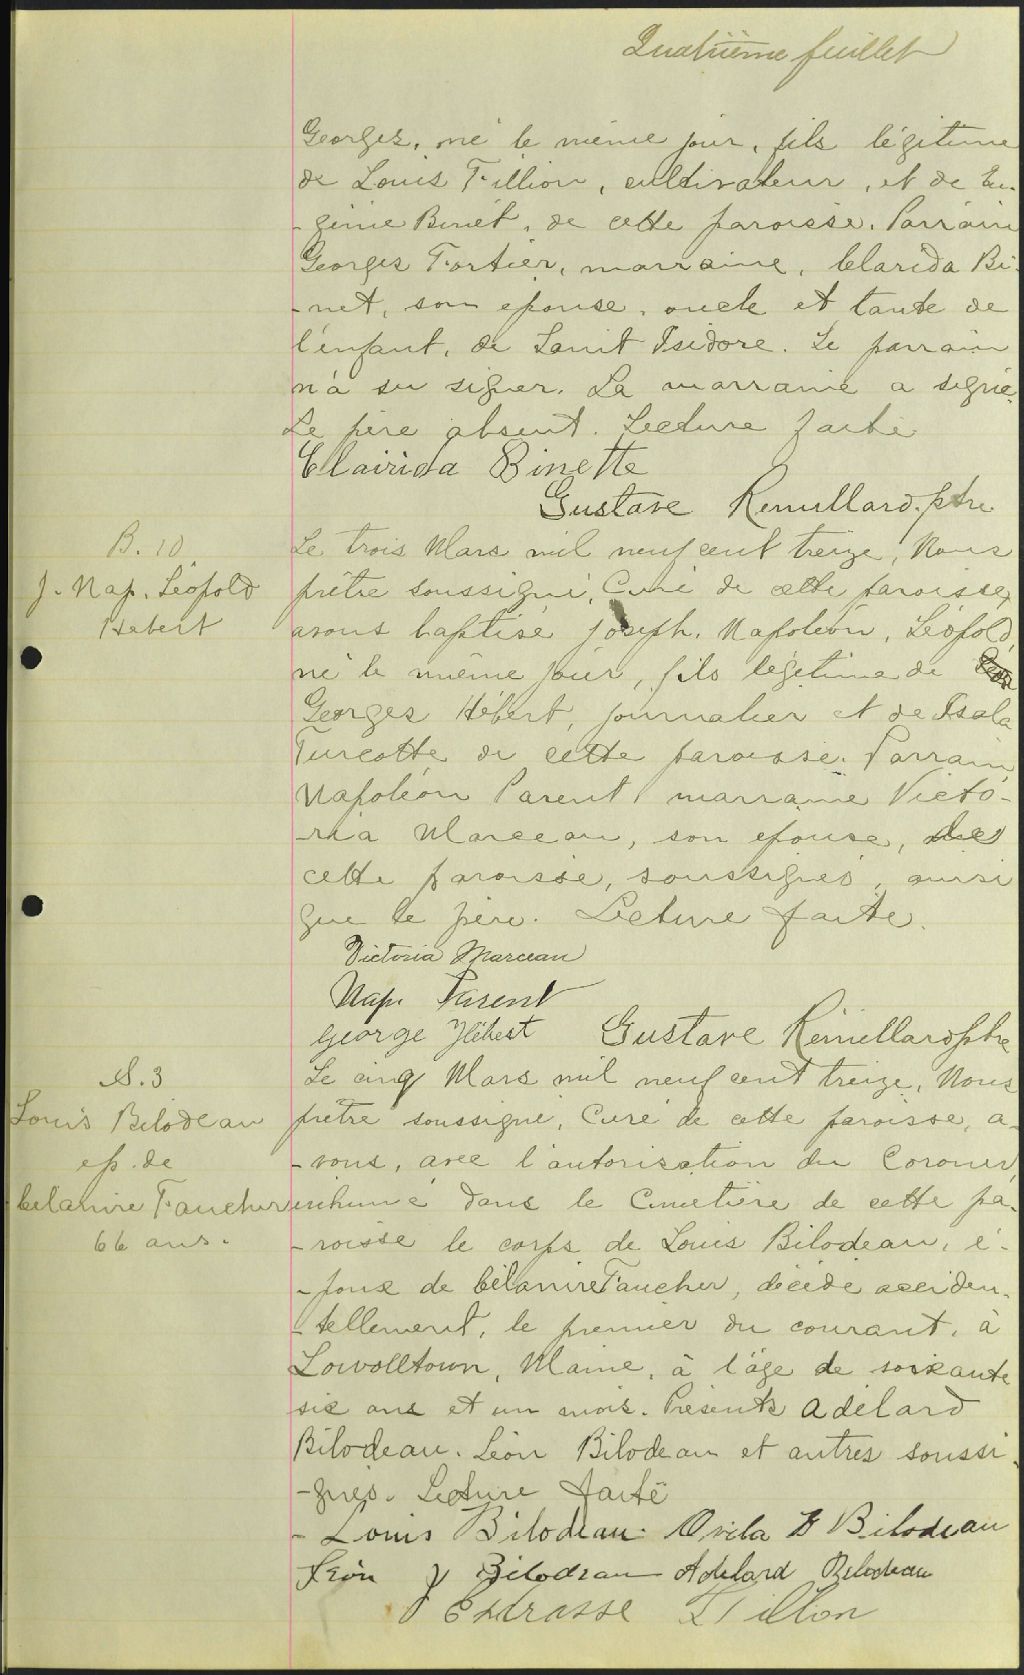 Quatrième feuillet
Georges, né le même jour, fils légitime
de Louis Fillion, cultivateur, et de Eu-
-génie Binet, de cette paroisse. Parrain
Georges Fortier, marraine, Clarida Bi-
-net, son épouse, oncle et tante de
l'enfant, de Saint Isidore. Le parrain
n'a su signer. La marraine a signé.
Le père absent. Lecture faite
Clairida Binette
Gustave Rémillard, ptre
B. 10
J. Nap. Léopold
Hébert
Le trois Mars mil neuf cent treize, Nous
prêtre soussigné, Curé de cette paroisse,
avons baptisé Joseph, Napoléon, Léopold,
né le même jour, fils légitime de
Georges Hébert, journalier et de Isala
Turcotte de cette paroisse. Parrain
Napoléon Parent, marraine Victo-
-ria Marceau, son épouse, de
cette paroisse, soussignés, ainsi
que le père. Lecture faite.
Victoria Marceau
Nap. Parent
George Hébert Gustave Rémillard ptre
S. 3
Louis Bilodeau
ép. de
Célanire Faucher
66 ans.
Le cinq Mars mil neuf cent treize, Nous
prêtre soussigné, Curé de cette paroisse, a-
-vons, avec l'autorisation du Coroner,
inhumé dans le Cimetière de cette pa-
-roisse le corps de Louis Bilodeau, é-
-poux de Célanire Faucher, décédé acciden-
-tellement, le premier du courant, à
Lowelltown, Maine, à l'âge de soixante
six ans et un mois. Présents Adélard
Bilodeau. Léon Bilodeau et autres soussi-
-gnés. Lecture faite
- Louis Bilodeau. Ovila Bilodeau
Léon J Bilodeau Adelard Bilodeau